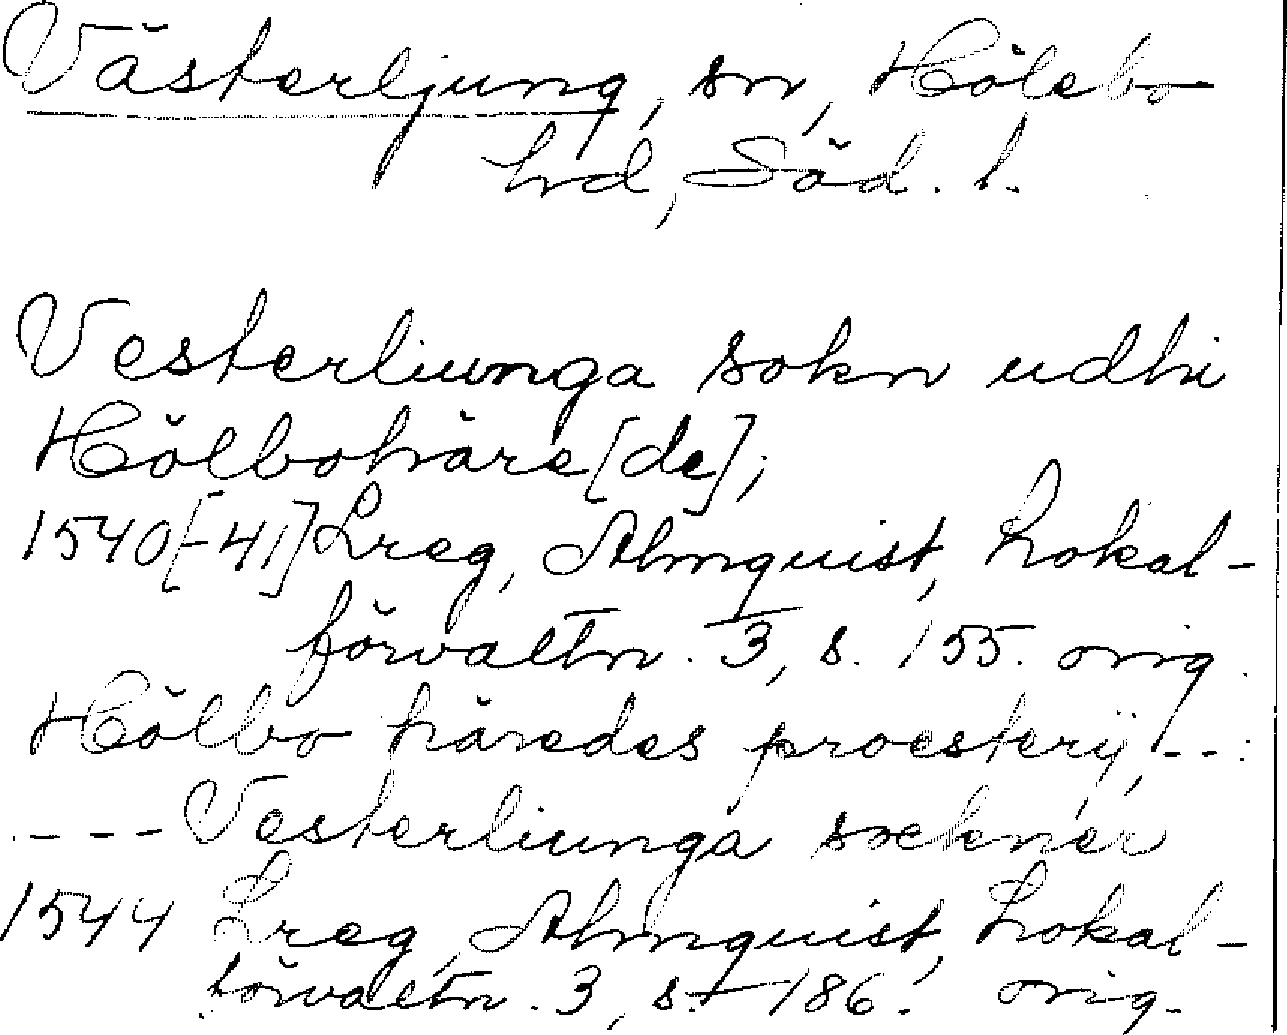 Västerljung, sn, Hölebo
hd, Söd. l.
Vesterliunga sokn udhi
Hölbohäre[de];
1540[-41] Lreg, Almquist, Lokal-
förvaltn. 3, s. 155. orig.
Hölbo häredes proesterij, --:
---- Vesterliunga sockner
1544 Lreg, Almquist, Lokal-
förvaltn. 3, s. 186. orig.